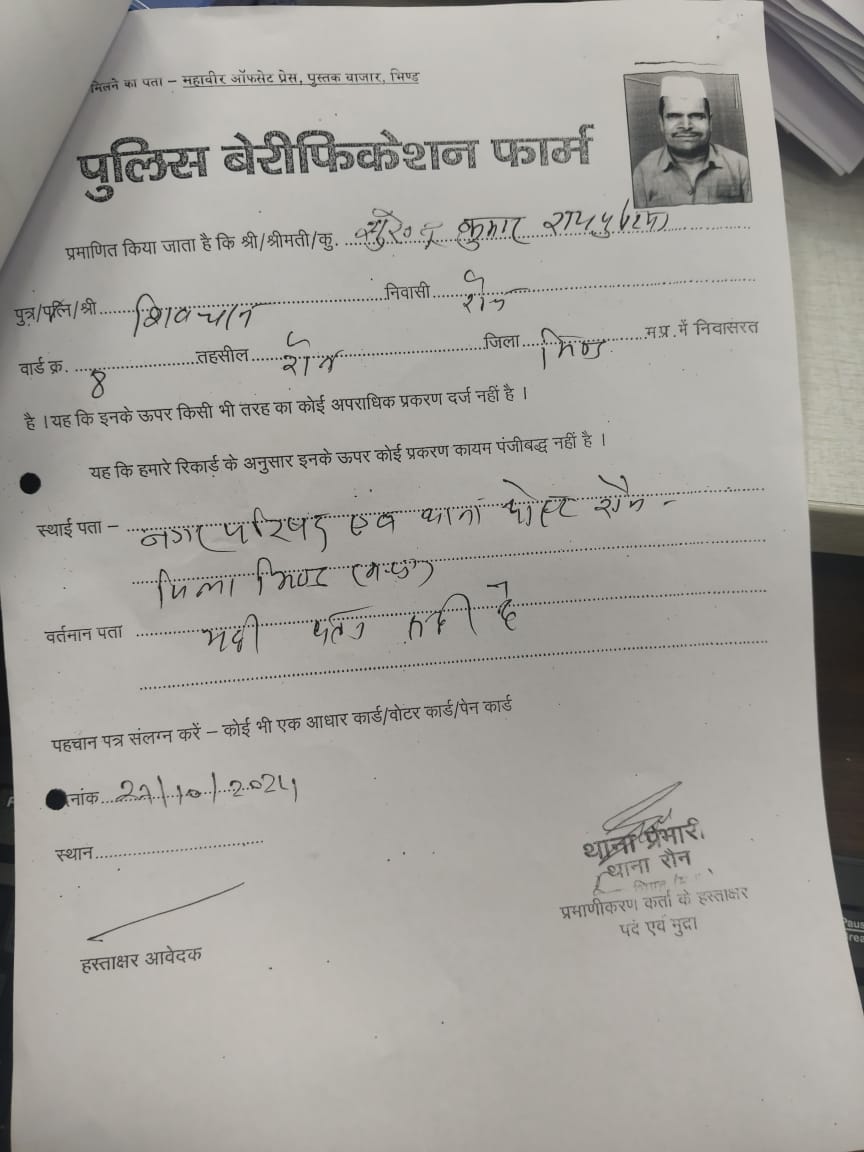 मिलने का पता – महावीर ऑफसेट प्रेस, पुस्तक बाजार, भिण्ड
पुलिस बेरीफिकेशन फार्म
प्रमाणित किया जाता है कि श्री/श्रीमती/कु. सुरेन्द्र कुमार
पुत्र/पत्नि/श्री शिवचरन निवासी रौन
वार्ड क्र. 8 तहसील रौन जिला भिण्ड म.प्र. में निवासरत
है । यह कि इनके ऊपर किसी भी तरह का कोई अपराधिक प्रकरण दर्ज नहीं है ।
यह कि हमारे रिकार्ड के अनुसार इनके ऊपर कोई प्रकरण कायम पंजीबद्ध नहीं है ।
स्थाई पता – नगर परिषद एवं थाना पोस्ट रौन
जिला भिण्ड (म.प्र)
वर्तमान पता
पहचान पत्र संलग्न करें – कोई भी एक आधार कार्ड/वोटर कार्ड/पेन कार्ड
नांक /10/2024
स्थान
थाना प्रभारी
थाना रौन
प्रमाणीकरण कर्ता के हस्ताक्षर
पद एवं मुद्रा
हस्ताक्षर आवेदक